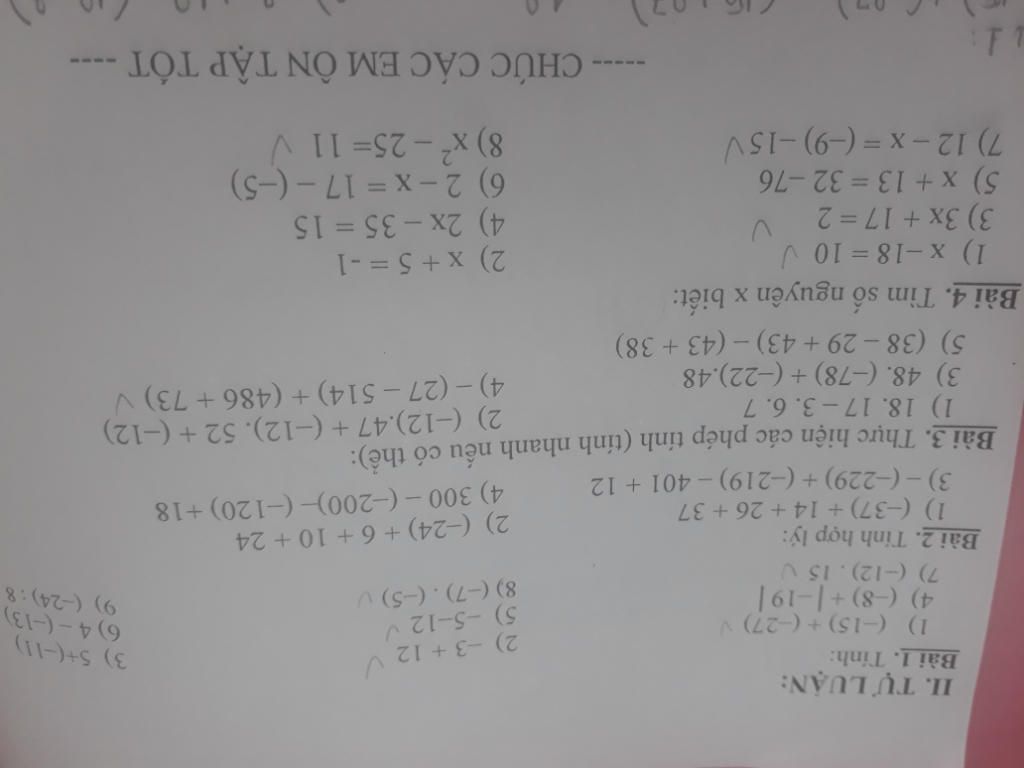 II. TỰ LUẬN:
Bài 1. Tính:
1) (−15) + (−27)
2) −3 + 12
3) 5+(−11)
4) (−8) + |−19|
5) −5−12
6) 4 − (−13)
7) (−12) . 15
8) (−7) . (−5)
9) (−24) : 8
Bài 2. Tính hợp lý:
1) (−37) + 14 + 26 + 37
2) (−24) + 6 + 10 + 24
3) − (−229) + (−219) − 401 + 12
4) 300 − (−200)− (−120) +18
Bài 3. Thực hiện các phép tính (tính nhanh nếu có thể):
1) 18. 17 − 3. 6. 7
2) (−12).47 + (−12). 52 + (−12)
3) 48. (−78) + (−22).48
4) − (27 − 514) + (486 + 73)
5) (38 − 29 + 43) − (43 + 38)
Bài 4. Tìm số nguyên x biết:
1) x −18 = 10
2) x + 5 = -1
3) 3x + 17 = 2
4) 2x − 35 = 15
5) x + 13 = 32 −76
6) 2 − x = 17 − (−5)
7) 12 − x = (−9) −15
8) x² − 25= 11
----- CHÚC CÁC EM ÔN TẬP TỐT ----